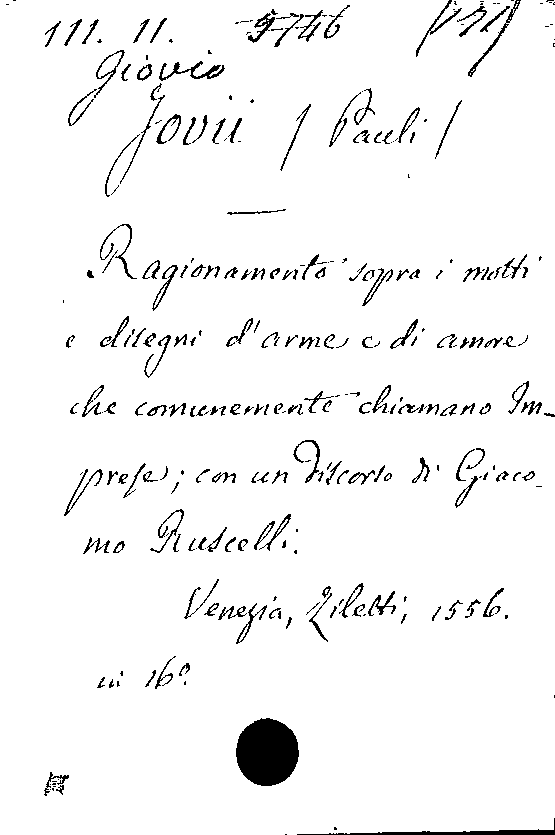 111. 11. 5746
Giovio
Jovii / Pauli /
Ragionamento sopra i motti
e disegni d'arme e di amore
che comunemente chiamano Im-
prese; con un discorso di Giaco-
mo Ruscelli.
Venezia, Ziletti, 1556.
in 16º.